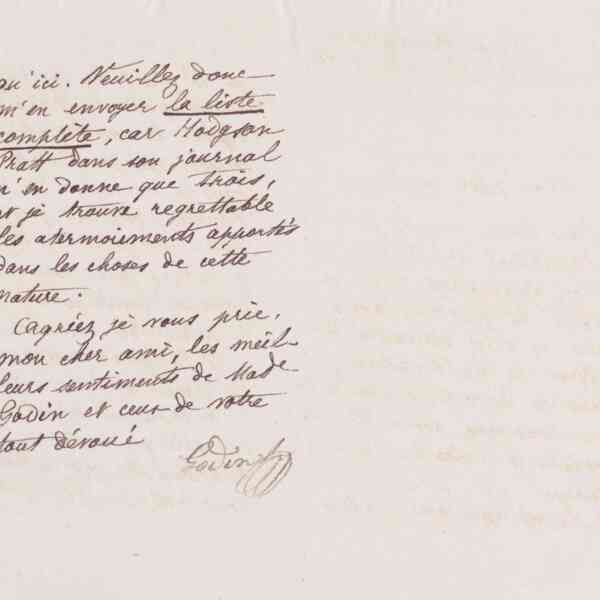 qu'ici. Veuillez donc
m'en envoyer la liste
complète, car Hodgson
Pratt dans son journal
n'en donne que trois,
et je trouve regrettable
les atermoiements apportés
dans les choses de cette
nature.
Agréez je vous prie,
mon cher ami, les meil-
leurs sentiments de Made
Godin et ceux de votre
tout dévoué
Godin